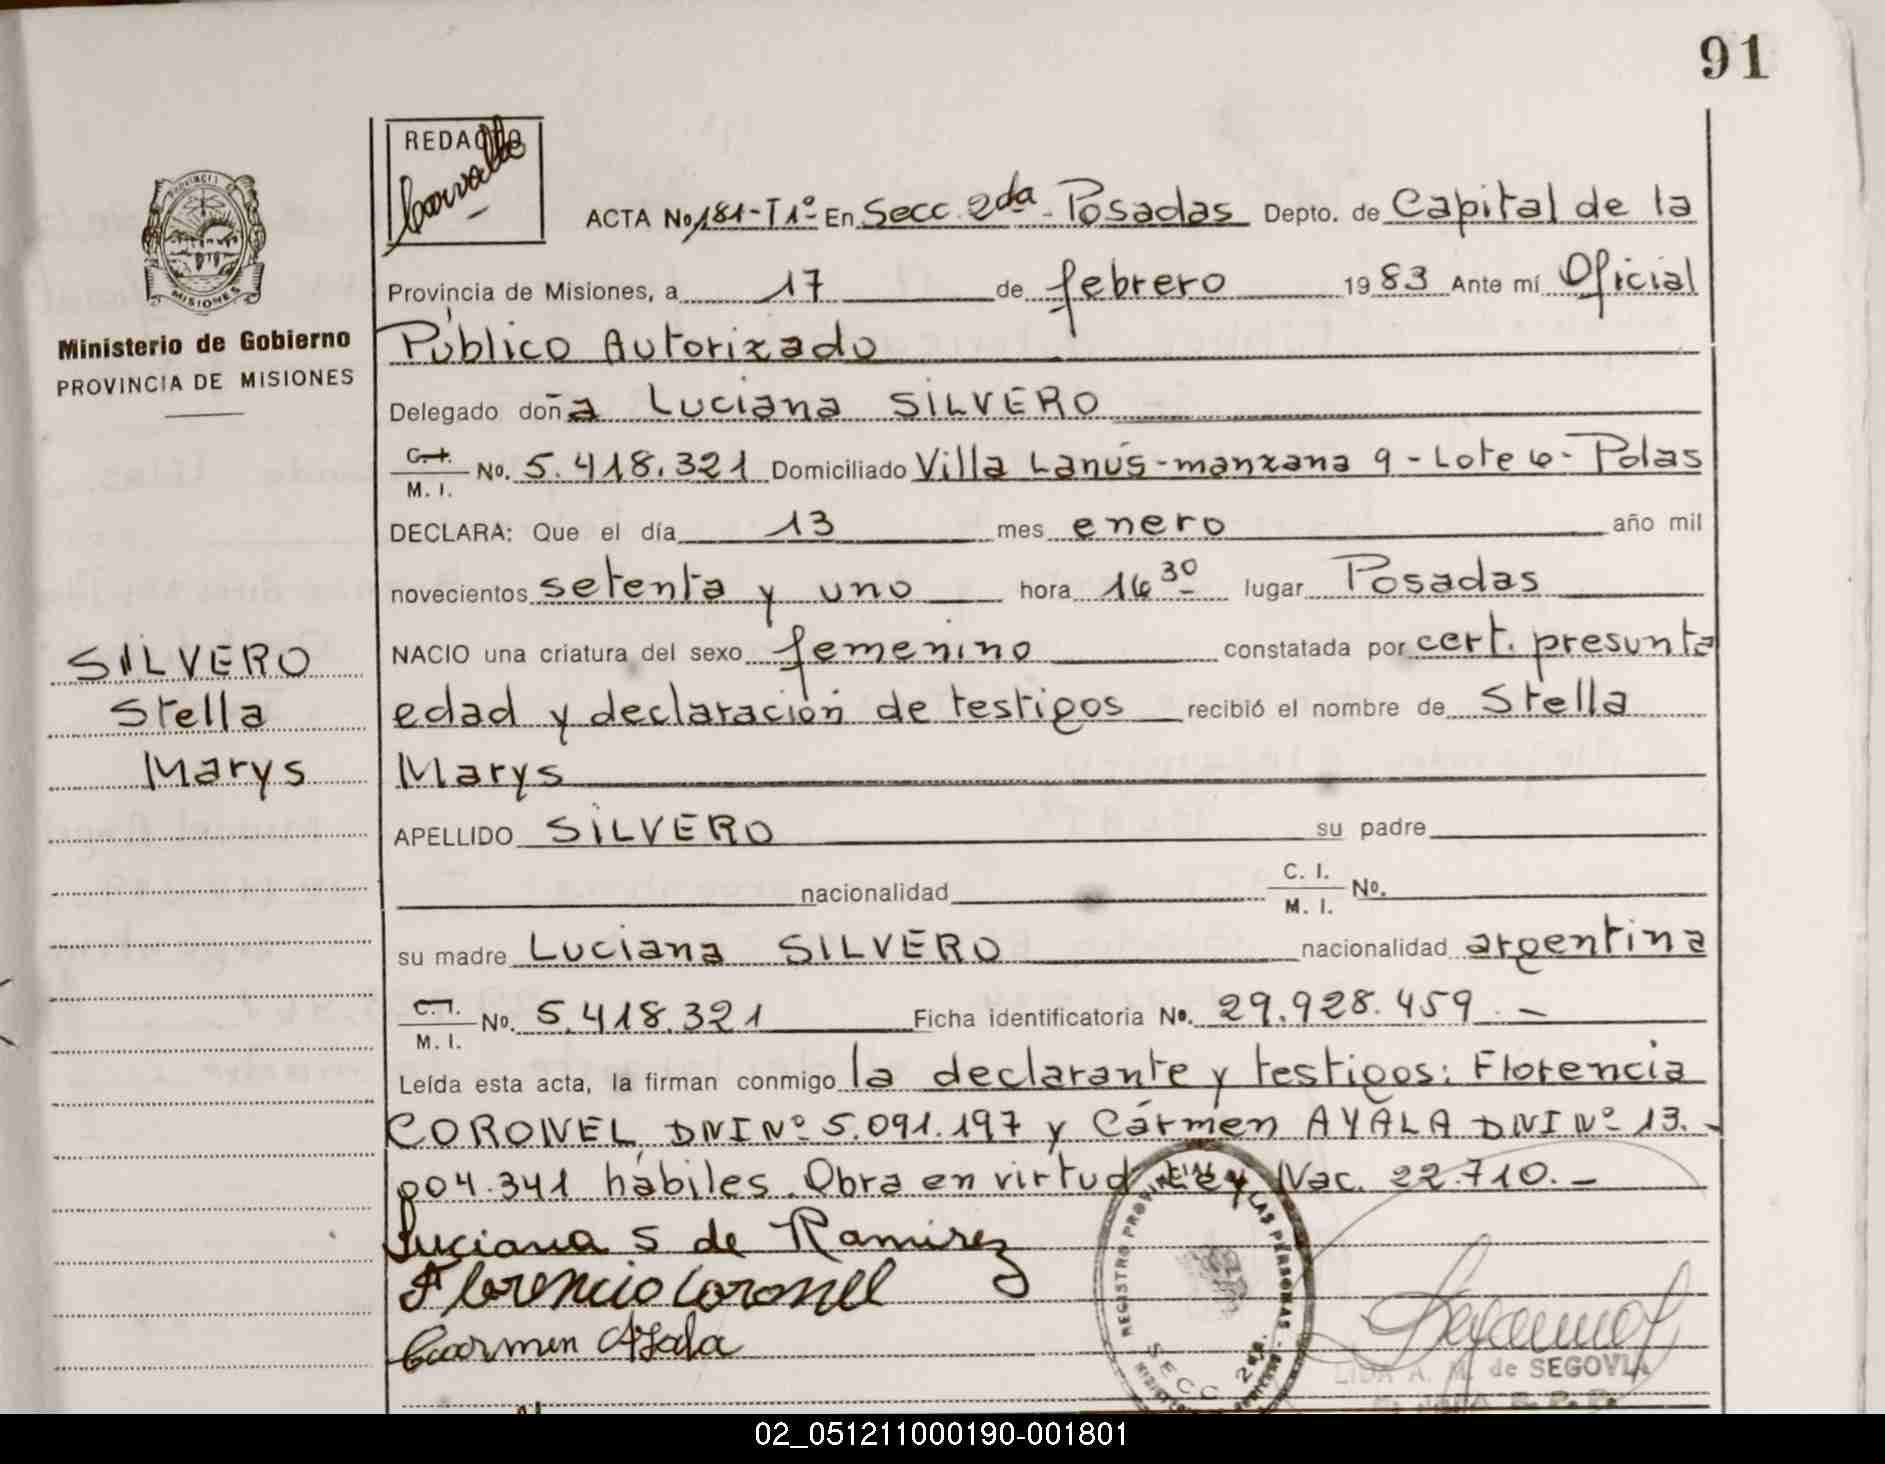 91
REDAC
Carvallo
ACTA No 181-T1º En Secc. 2da - Posadas Depto. de Capital de la
Provincia de Misiones, a 17 de febrero 1983 Ante mí Oficial
Público Autorizado
Delegado doña Luciana SILVERO
C.I. M. I. No. 5.418.321 Domiciliado Villa Lanús - manzana 9 - Lote 6 - Pdas
DECLARA: Que el día 13 mes enero año mil
novecientos setenta y uno hora 16 30 lugar Posadas
NACIO una criatura del sexo femenino constatada por cert. presunta
edad y declaración de testigos recibió el nombre de Stella
Marys
APELLIDO SILVERO su padre
nacionalidad C. I. M. I. No.
su madre Luciana SILVERO nacionalidad argentina
C.I. M. I. No. 5.418.321 Ficha identificatoria No. 29.928.459.-
Leída esta acta, la firman conmigo la declarante y testigos: Florencia
CORONEL DNI Nº 5.091.197 y Cármen AYALA DNI Nº 13.-
004.341 hábiles. Obra en virtud Ley Nac. 22.710.-
Luciana S de Ramirez
Florencio Coronel
Carmen Ayala
PROVINCIA
MISIONES
Ministerio de Gobierno
PROVINCIA DE MISIONES
SILVERO
Stella
Marys
REGISTRO PROVINCIAL DE LAS PERSONAS
SECC 2da.
LIDA A. M. de SEGOVIA
02_051211000190-001801